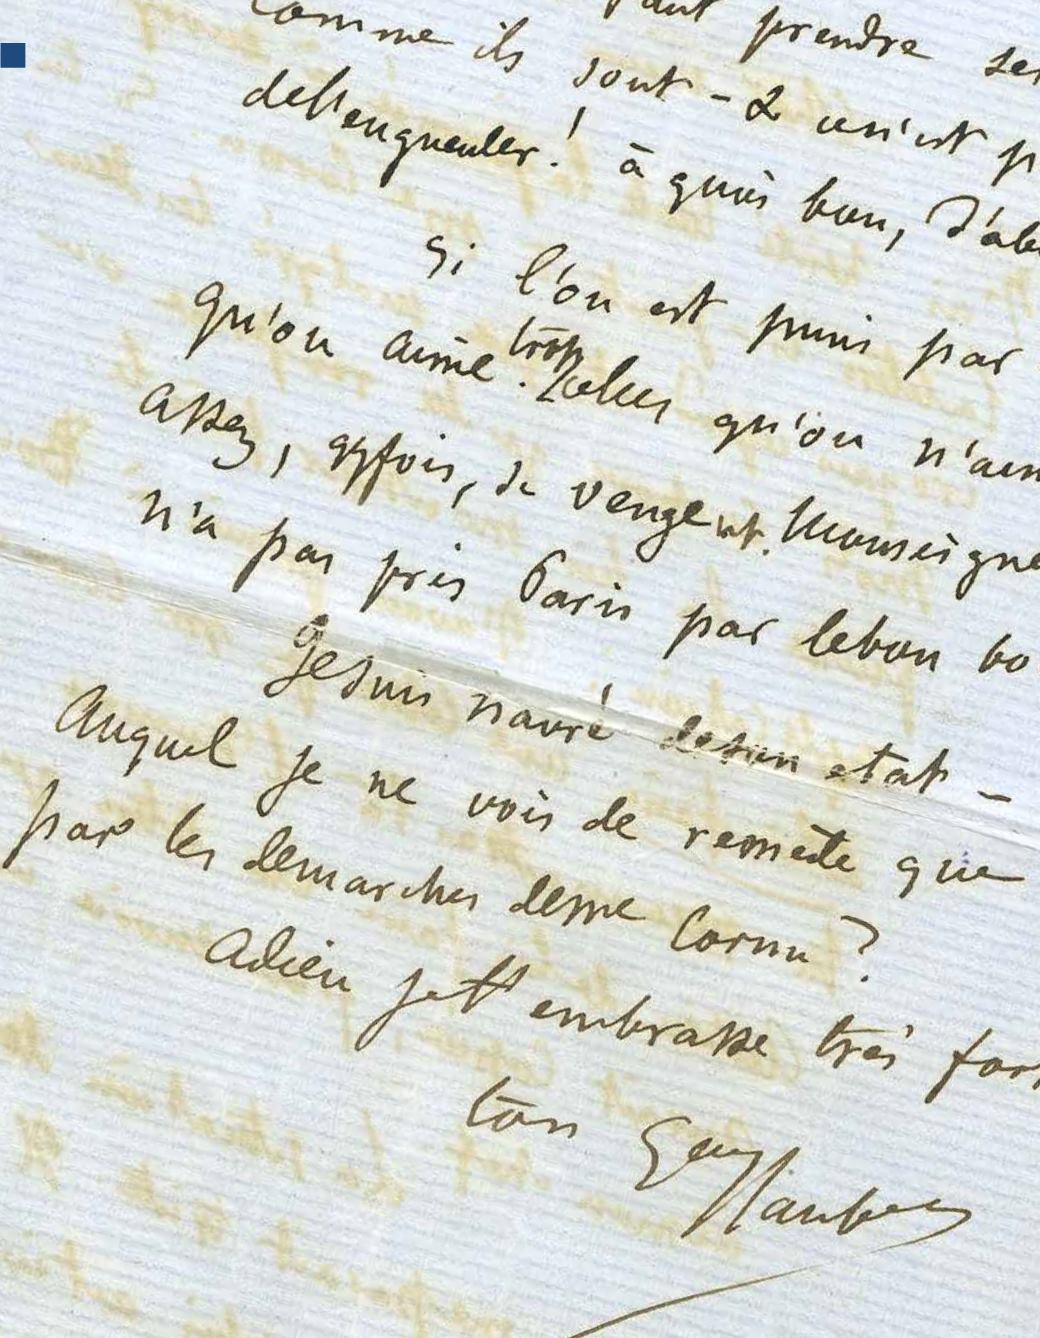 faut prendre se
Comme ils sont – & ce n'est p
de l'engueuler! à quoi bon, d'ab
Si l'on est puni par
qu'on aime trop. celles qu'on n'aim
assez, qqfois, se vengent. Monseigne
n'a pas pris Paris par le bon bo
Je suis navré de son etat –
Auquel je ne vois de remède que
par les demarches de Mme Cornu ?
Adieu je t'embrasse très fort
ton Gve Flaubert